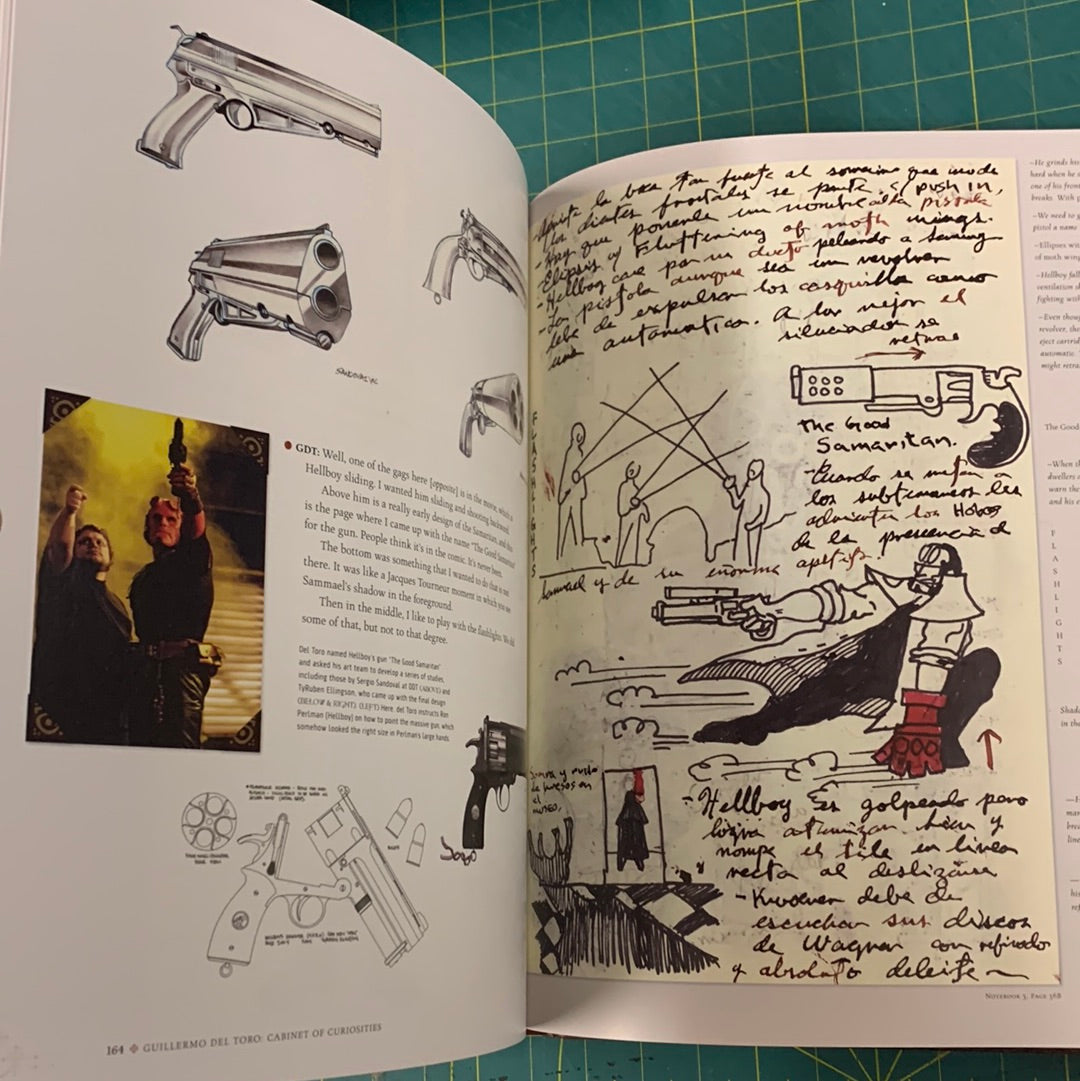 SANDOVAL/02
GDT: Well, one of the gags here [opposite] is in the movie, which is
Hellboy sliding. I wanted him sliding and shooting backward.
Above him is a really early design of the Samaritan, and this
is the page where I came up with the name "The Good Samaritan"
for the gun. People think it's in the comic. It's never been.
The bottom was something that I wanted to do that is not
there. It was like a Jacques Tourneur moment in which you see
Sammael's shadow in the foreground.
Then in the middle, I like to play with the flashlights. We did
some of that, but not to that degree.
Del Toro named Hellboy's gun "The Good Samaritan"
and asked his art team to develop a series of studies,
including those by Sergio Sandoval at DDT (ABOVE) and
TyRuben Ellingson, who came up with the final design
(BELOW & RIGHT). (LEFT) Here, del Toro instructs Ron
Perlman (Hellboy) on how to point the massive gun, which
somehow looked the right size in Perlman's large hands.
164 GUILLERMO DEL TORO: CABINET OF CURIOSITIES
la boca tan fuerte al
los dientes frontales se parte. c/ push in,
-Hay que ponerle un nombre a la pistola
Elipsis c/ Fluttering of moth wings.
-Hellboy cae por un ducto peleando a
-La pistola aunque sea un revolver
debe de expulsar los casquillos como
una automatica. A lo mejor el
silenciador se
retrae
FLASHLIGHTS
The Good
Samaritan.
-Cuando se meten a
los subterraneos les
advierten los Hobos
de la presencia d
Sammael y de su enorme apetito.
y
de huesos en
el
museo.
-Hellboy es golpeado pero
logra aterrizar bien y
rompe el tile en linea
recta al deslizarse
-Kroenen debe de
escuchar sus discos
de Wagner con refinado
y absoluto deleite
NOTEBOOK 3, PAGE 36B
–He grinds his
hard when he s
one of his fron
breaks. With p
–We need to g
pistol a name
–Ellipses wit
of moth wing
–Hellboy fall
ventilation sh
fighting with
–Even thoug
revolver, the
eject cartrid
automatic.
might retra
The Good
–When th
dwellers a
warn the
and his e
FLASHLIGHTS
Shado
in the
–H
man
brea
line
his
ref